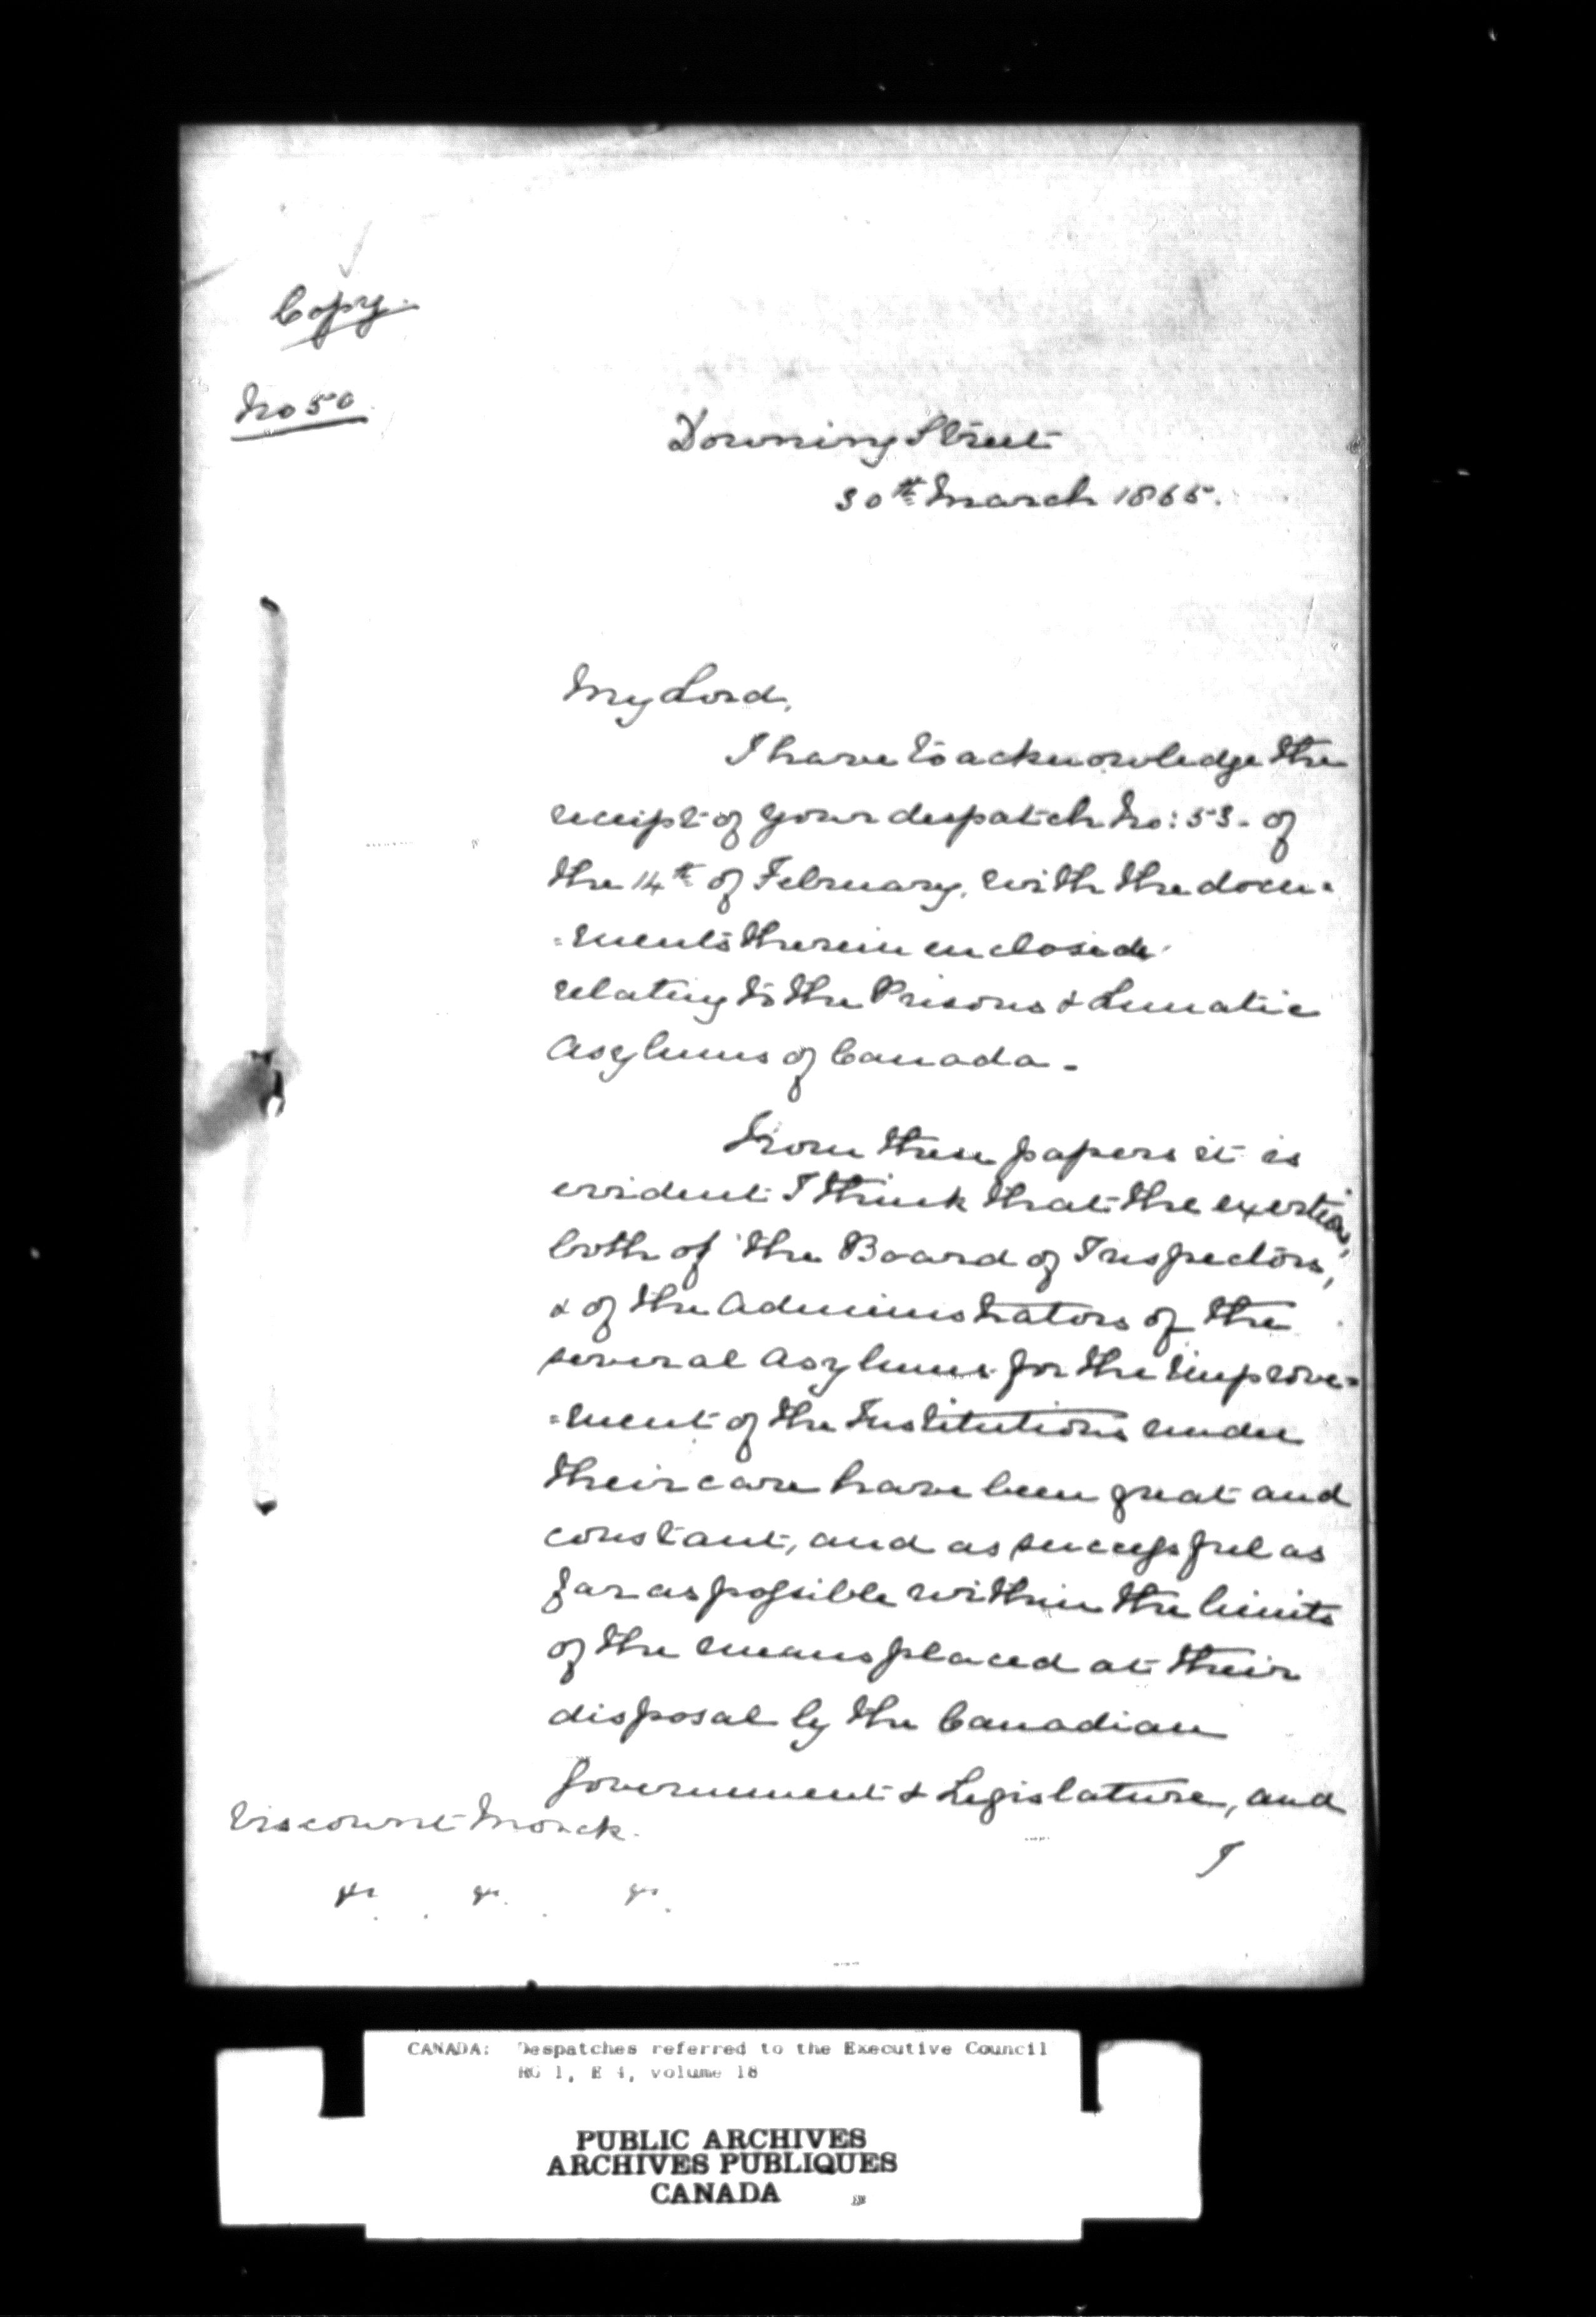 Copy.
No 50
Downing Street
30th March 1865.
My Lord,
I have to acknowledge the
receipt of your despatch No: 53. of
the 14th of February, with the docu-
=ments therein enclosed
relating to the Prisons & Lunatic
Asylums of Canada.
From these papers it is
evident I think that the exertions,
both of the Board of Inspectors,
& of the Administrators of the
several Asylums for the improve=
=ment of the Institutions under
their care have been great and
constant, and as successful as
far as possible within the limits
of the means placed at their
disposal by the Canadian
Government & Legislature, and
I
Viscount Monck.
&c. &c. &c.
CANADA: Despatches referred to the Executive Council
RG 1, E 4, volume 18
PUBLIC ARCHIVES
ARCHIVES PUBLIQUES
CANADA